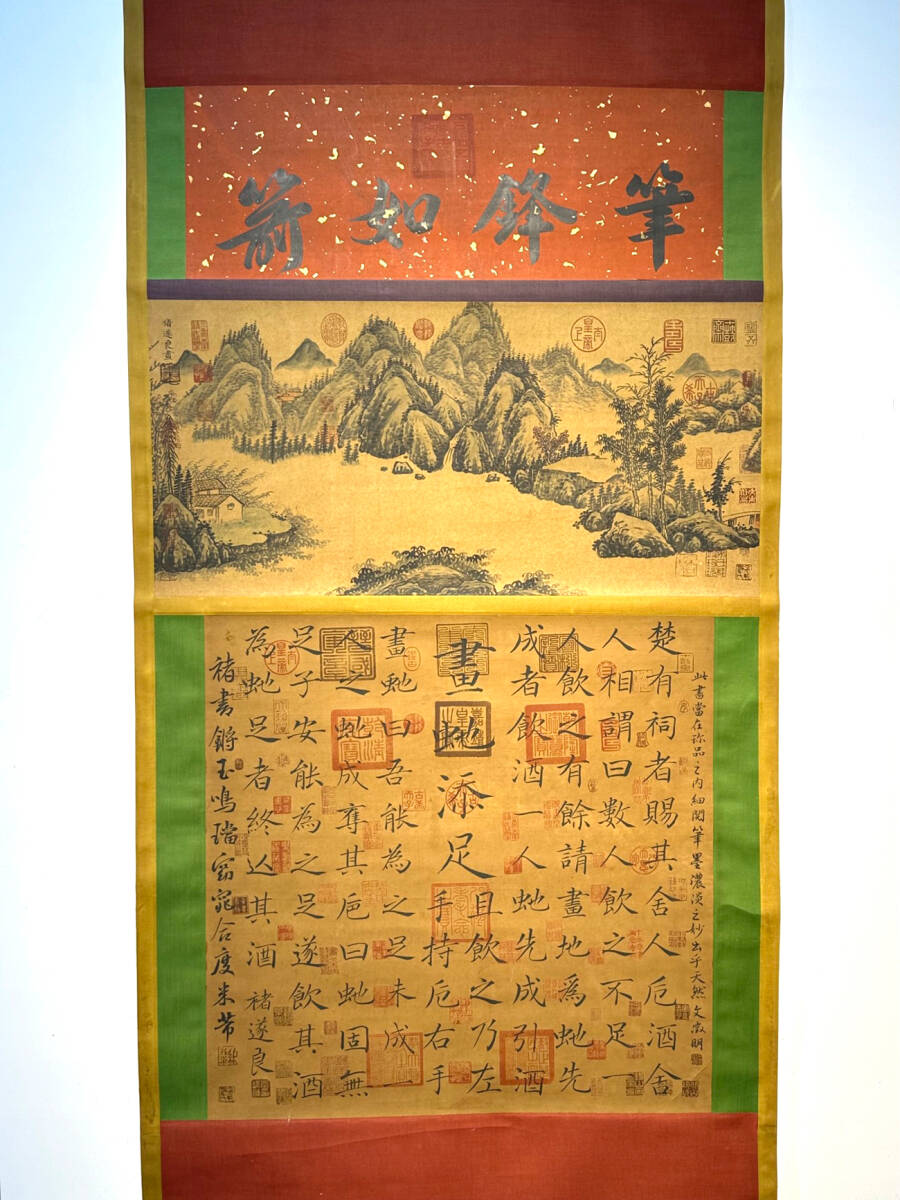 筆鋒如箭
褚遂良畫
此書當在珍品之内細閱筆墨濃淡之妙出乎天然文徵明
楚有祠者賜其舍人卮酒舍
人相謂曰數人飲之不足一
人飲之有餘請畫地為虵先
成者飲酒一人虵先成引酒
畫虵添足
且飲之乃左
手持卮右手
畫虵曰吾能為之足未成一
人之虵成奪其卮曰虵固無
足子安能為之足遂飲其酒
為虵足者終亡其酒 褚遂良
褚書鏘玉鳴璫窈窕合度米芾